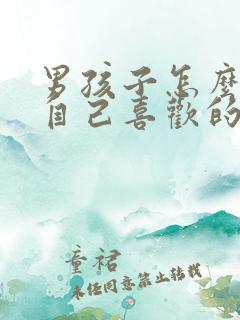 男孩子怎麼
自己喜歡的
童裙
未任同意禁止轉載